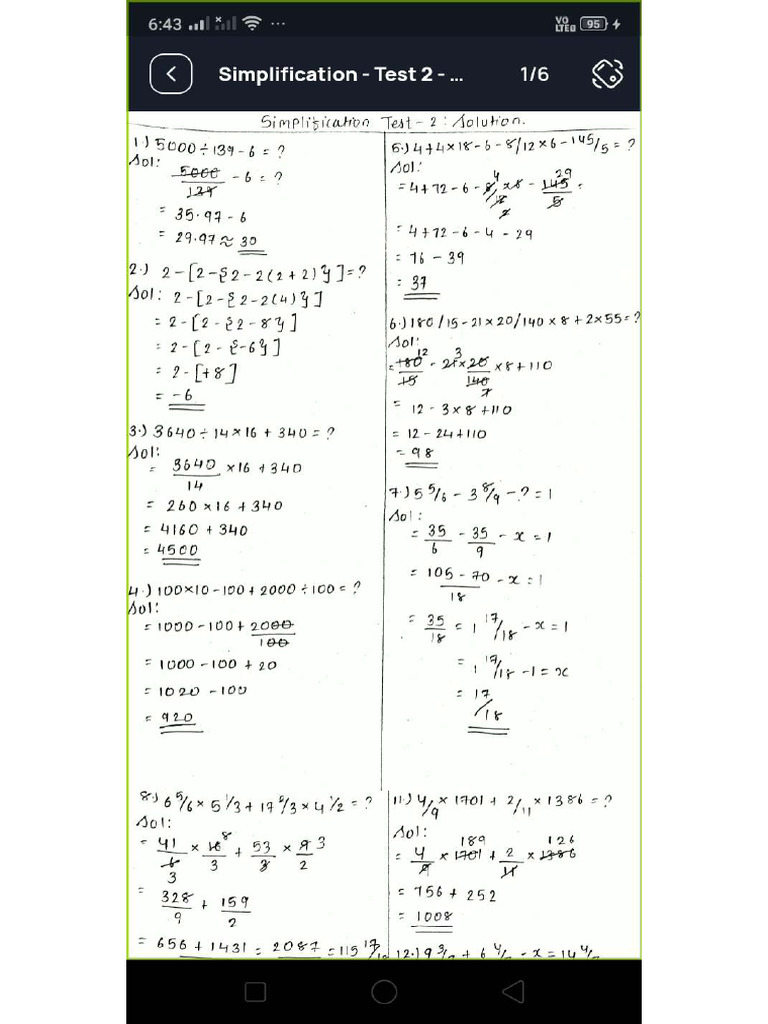 6:43 ... VO LTE 95
Simplification - Test 2 - ... 1/6
Simplification Test - 2 : Solution.
1.) 5000 ÷ 139 - 6 = ?
Sol:
5000/139 - 6 = ?
= 35.97 - 6
= 29.97 ≈ 30
2.) 2 - [2 - {2 - 2(2+2)}] = ?
Sol: 2 - [2 - {2 - 2(4)}]
= 2 - [2 - {2 - 8}]
= 2 - [2 - {-6}]
= 2 - [+8]
= -6
3.) 3640 ÷ 14 × 16 + 340 = ?
Sol:
= 3640/14 × 16 + 340
= 260 × 16 + 340
= 4160 + 340
= 4500
4.) 100×10 - 100 + 2000 ÷ 100 = ?
Sol:
= 1000 - 100 + 2000/100
= 1000 - 100 + 20
= 1020 - 100
= 920
5.) 4 + 4 × 18 - 6 - 8/12 × 6 - 145/5 = ?
Sol:
= 4 + 72 - 6 - 4 - 29
= 76 - 39
= 37
6.) 180/15 - 21 × 20/140 × 8 + 2 × 55 = ?
Sol:
= 180/15 12 - 21 3 × 20/140 7 × 8 + 110
= 12 - 3 × 8 + 110
= 12 - 24 + 110
= 98
7.) 5 5/6 - 3 8/9 - ? = 1
Sol:
= 35/6 - 35/9 - x = 1
= 105 - 70/18 - x = 1
= 35/18 = 1 17/18 - x = 1
= 1 17/18 - 1 = x
= 17/18
8.) 6 5/6 × 5 1/3 + 17 5/3 × 4 1/2 = ?
Sol:
= 41/6 3 × 16 8/3 + 53/3 × 9 3/2
= 328/9 + 159/2
= 656 + 1431 = 2087 = 115 17/
11.) 4/9 × 1701 + 2/11 × 1386 = ?
Sol:
= 4/9 × 1701 189 + 2/11 × 1386 126
= 756 + 252
= 1008
12.) 9 3/ + 6 4/ - x = 14 4/